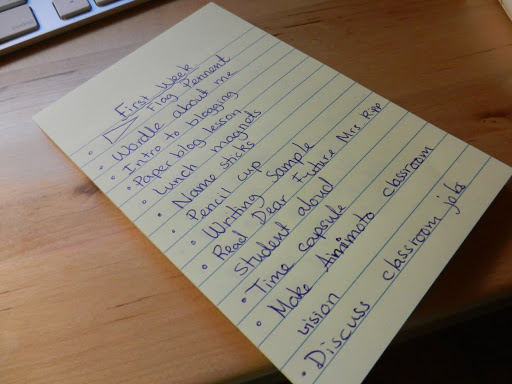 First Week
• Flag Pennent
• Wordle about me
• Intro to blogging
• Paper blog lesson
• Lunch magnets
• Name sticks
• Pencil cup
• Writing Sample
• Read Dear Future Mrs Ripp
student aloud
• Time capsule
• Make Animoto classroom
vision
• Discuss classroom jobs